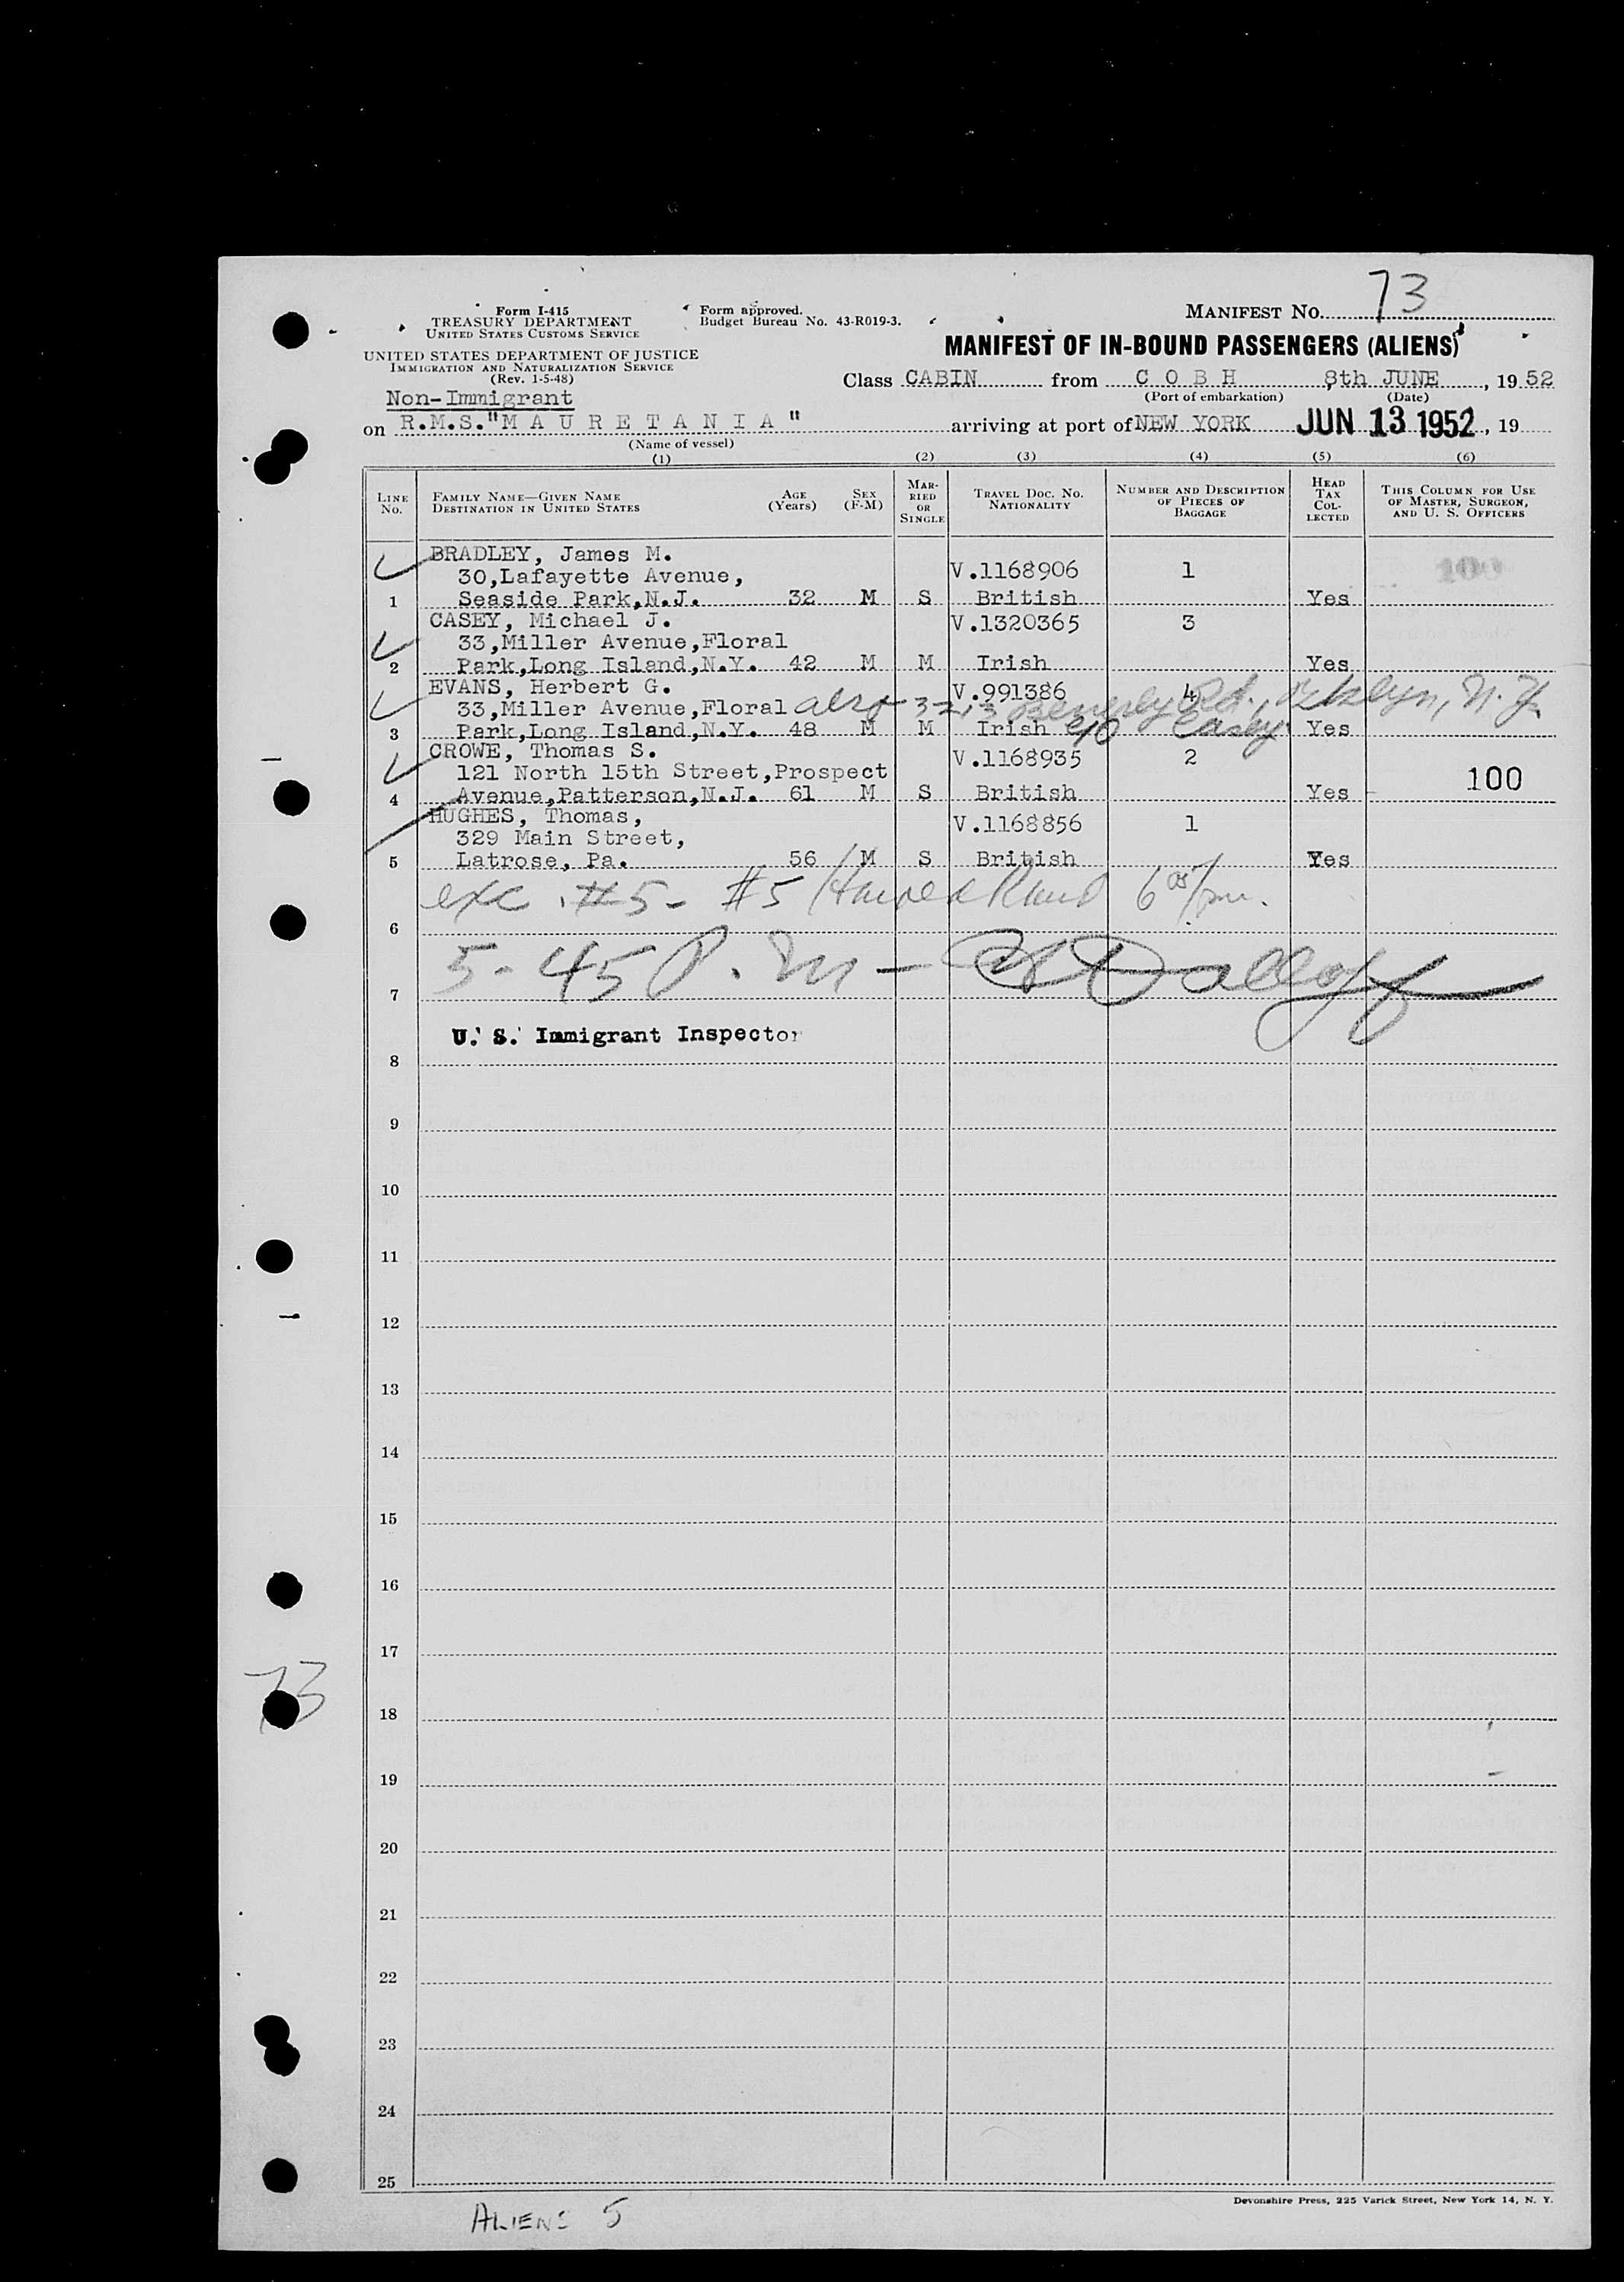 73
Form I-415
TREASURY DEPARTMENT
UNITED STATES CUSTOMS SERVICE
Form approved.
Budget Bureau No. 43-R019-3.
MANIFEST NO. 73
UNITED STATES DEPARTMENT OF JUSTICE
IMMIGRATION AND NATURALIZATION SERVICE
(Rev. 1-5-48)
MANIFEST OF IN-BOUND PASSENGERS (ALIENS)
Class CABIN from C O B H 8th JUNE, 19 52
(Port of embarkation) (Date)
Non-Immigrant
on R.M.S. "M A U R E T A N I A" arriving at port of NEW YORK JUN 13 1952, 19
(Name of vessel)
(1) (2) (3) (4) (5) (6)
LINE NO. FAMILY NAME—GIVEN NAME DESTINATION IN UNITED STATES AGE (Years) SEX (F-M) MARRIED OR SINGLE TRAVEL DOC. NO. NATIONALITY NUMBER AND DESCRIPTION OF PIECES OF BAGGAGE HEAD TAX COLLECTED THIS COLUMN FOR USE OF MASTER, SURGEON, AND U. S. OFFICERS
BRADLEY, James M.
30,Lafayette Avenue, V.1168906 1 100
1 Seaside Park,N.J. 32 M S British Yes
CASEY, Michael J. V.1320365 3
33,Miller Avenue,Floral
2 Park,Long Island,N.Y. 42 M M Irish Yes
EVANS, Herbert G. V.991386 4
33,Miller Avenue,Floral also 3213 Beverly Rd., Bklyn, N.Y.
3 Park,Long Island,N.Y. 48 M M Irish c/o Casey Yes
CROWE, Thomas S. V.1168935 2
121 North 15th Street,Prospect 100
4 Avenue,Patterson,N.J. 61 M S British Yes
HUGHES, Thomas, V.1168856 1
329 Main Street,
5 Latrose, Pa. 56 M S British Yes
exc. #5 - #5 6 05/pm.
6
5-45 P.M —
7
U. S. Immigrant Inspector
8
9
10
11
12
13
14
15
16
17
73
18
19
20
21
22
23
24
25
Devonshire Press, 225 Varick Street, New York 14, N. Y.
ALIENS 5